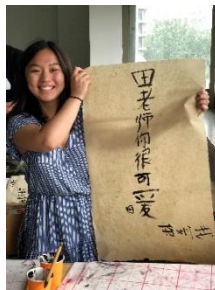 田老师你很可爱